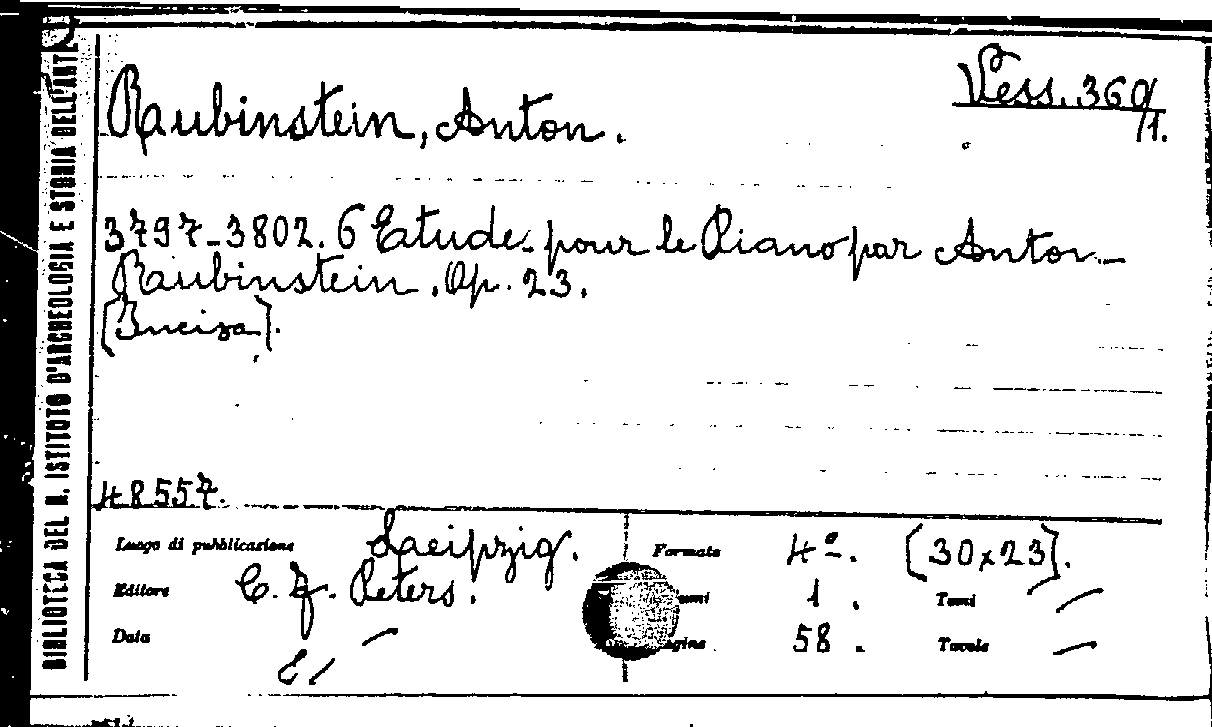 BIBLIOTECA DEL R. ISTITUTO D'ARCHEOLOGIA E STORIA DELL'ART
Vess. 360/1.
Rubinstein, Anton.
3797-3802. 6 Etude pour le Piano par Anton
Rubinstein. Op. 23.
[Incisa].
48557.
Luogo di pubblicazione Leipzig.
Formato 4º. [30x23].
Editore C. F. Peters.
umi 1. Tomi —
Data —
agine 58. Tavole —